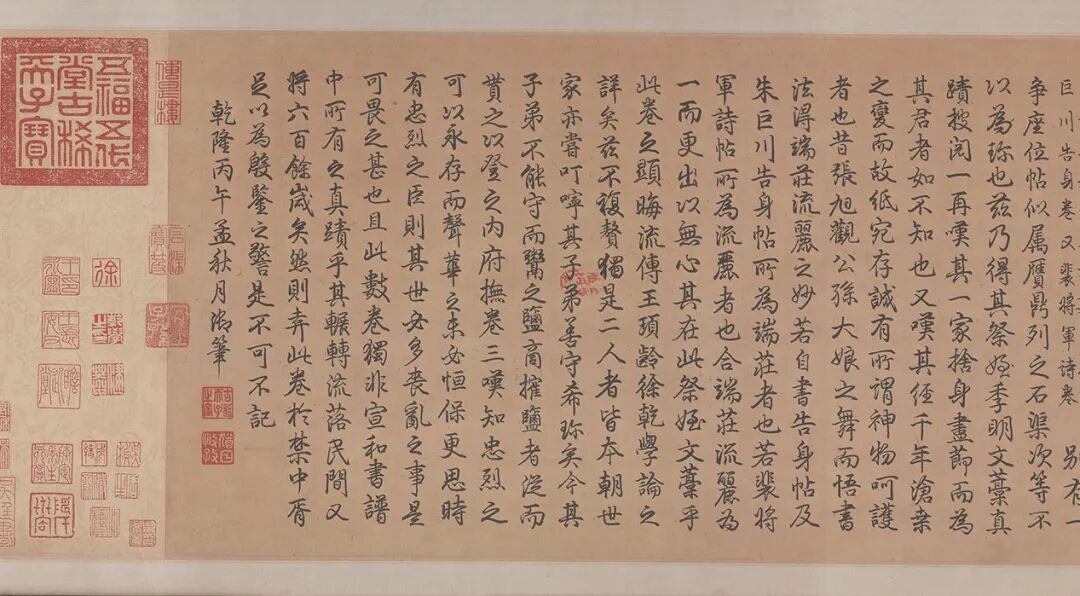 巨川告身卷又裴將軍诗卷 别有一
争座位帖似属贗鼎列之石渠次等不
以為珎也兹乃得其祭姪季明文藁真
蹟披閲一再嘆其一家捨身盡節而為
其君者如不知也又嘆其經千年滄桑
之變而故紙宛存誠有所謂神物呵護
者也昔張旭觀公孫大娘之舞而悟書
法得端莊流麗之妙若自書告身帖及
朱巨川告身帖所為端莊者也若裴將
軍詩帖所為流麗者也合端莊流麗為
一而更出以無心其在此祭姪文藁乎
此卷之顯晦流傳王頊齡徐乾學論之
詳矣兹不複贅獨是二人者皆本朝世
家亦嘗叮嚀其子弟善守希珎矣今其
子弟不能守而鬻之鹽商搉鹽者從而
貰之以登之内府撫卷三嘆知忠烈之
可以永存而聲華之未必恒保更思時
有忠烈之臣則其世必多喪亂之事是
可畏之甚也且此數卷獨非宣和書譜
中所有之真蹟乎其輾轉流落民間又
將六百餘歲矣然則弆此卷於禁中胥
足以為殷鑒之警是不可不記
乾隆丙午孟秋月御筆
五福五代
堂古稀
天子寶